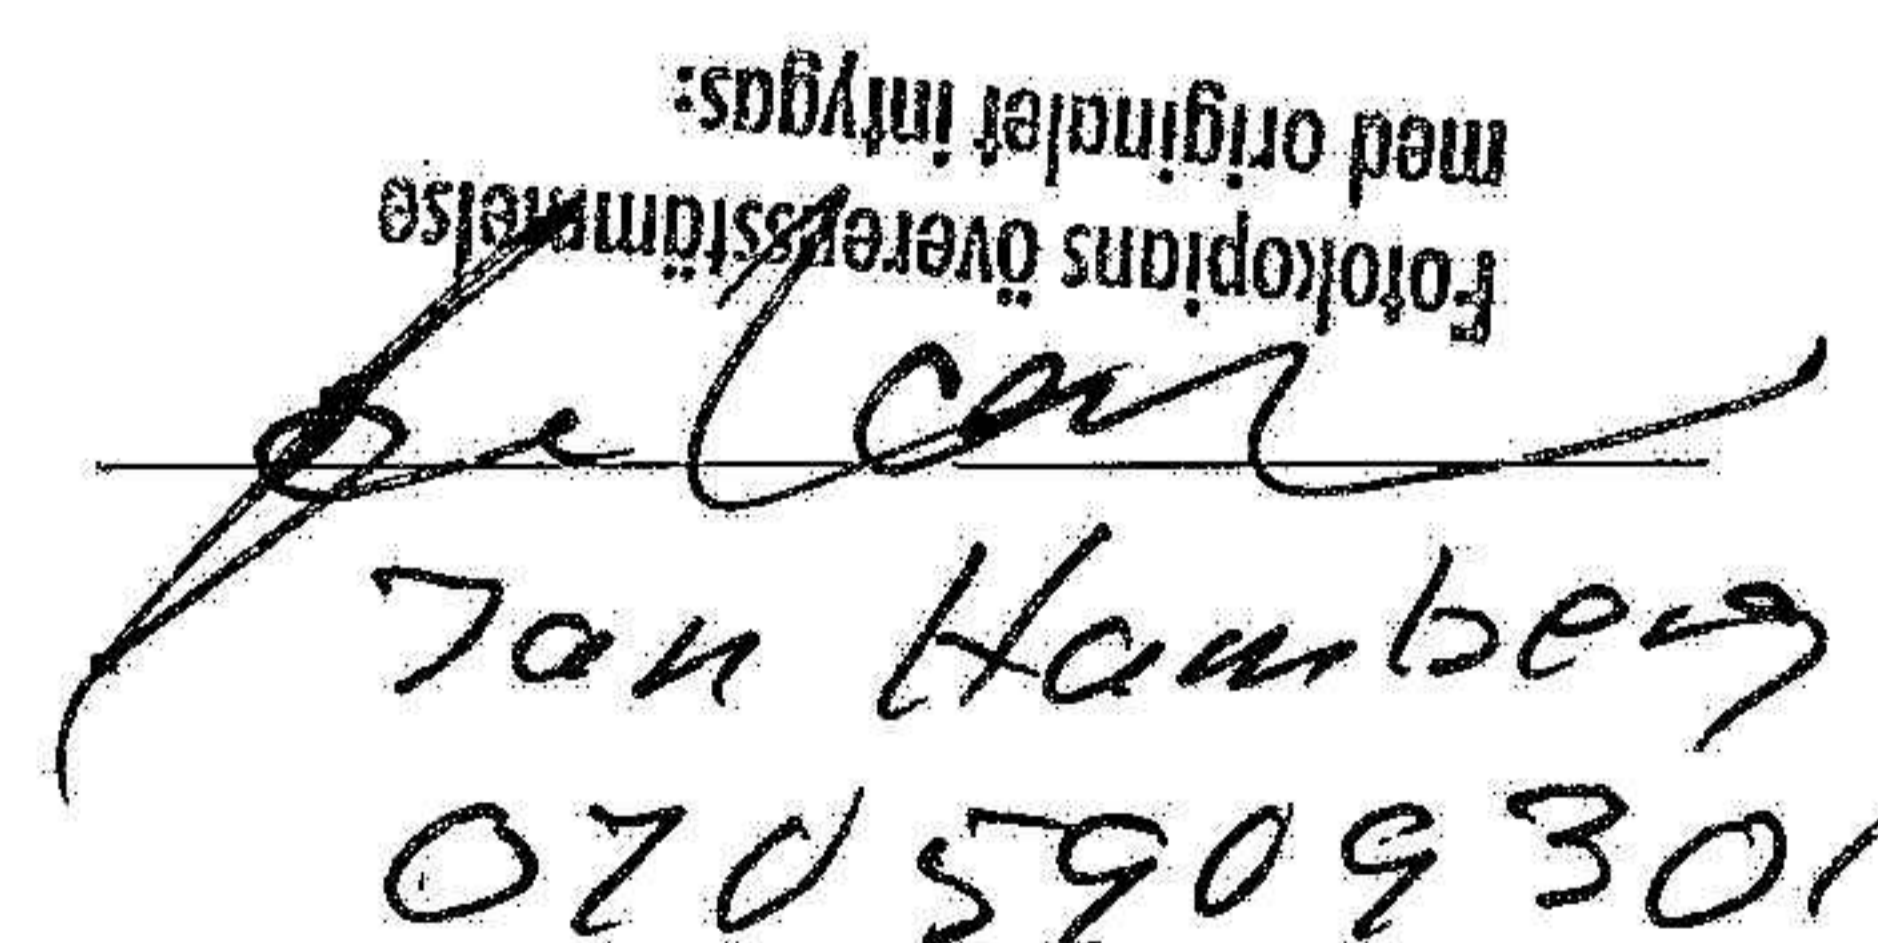 Fotokopians överensstämmelse
med originalet intygas:
Jan Hamberg
070 590930